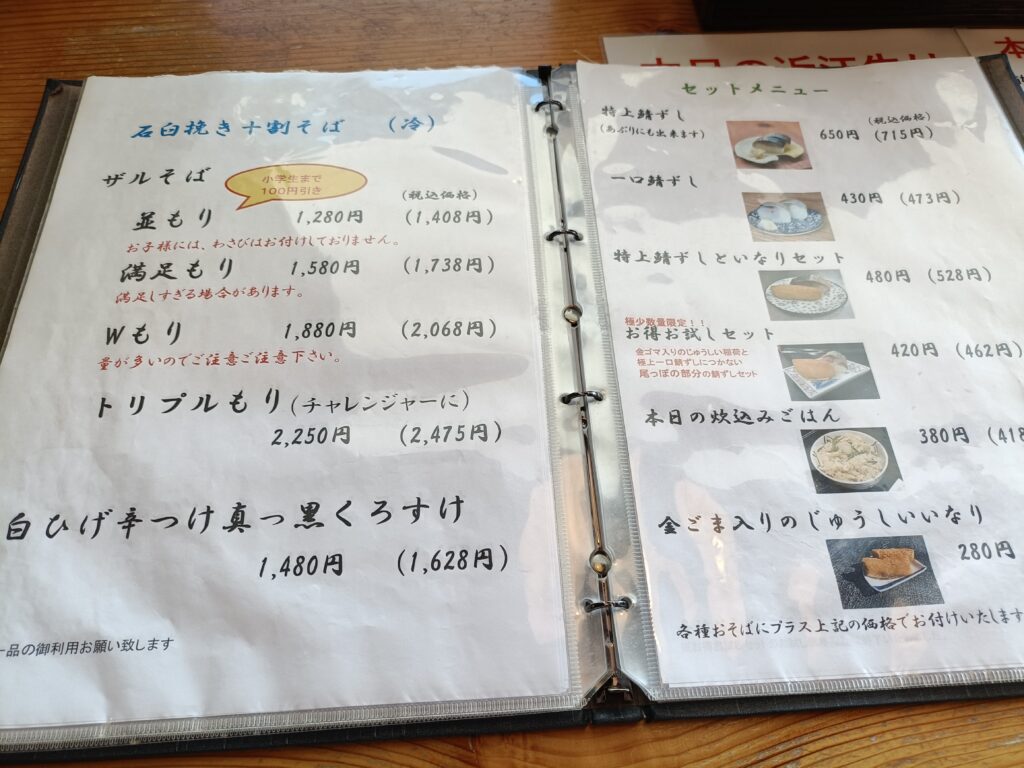 石臼挽き十割そば （冷）
ザルそば
小学生まで
100円引き
(税込価格)
並もり 1,280円 (1,408円)
お子様には、わさびはお付けしておりません。
満足もり 1,580円 (1,738円)
満足しすぎる場合があります。
Wもり 1,880円 (2,068円)
量が多いのでご注意ご注意下さい。
トリプルもり(チャレンジャーに)
2,250円 (2,475円)
白ひげ辛つけ真っ黒くろすけ
1,480円 (1,628円)
一品の御利用お願い致します
セットメニュー
特上鯖ずし
(あぶりにも出来ます)
(税込価格)
650円 (715円)
一口鯖ずし
430円 (473円)
特上鯖ずしといなりセット
480円 (528円)
極少数量限定！！
お得お試しセット
420円 (462円)
金ゴマ入りのじゅうしい稲荷と
極上一口鯖ずしにつかない
尾っぽの部分の鯖ずしセット
本日の炊込みごはん
380円 (418
金ごま入りのじゅうしいいなり
280円
各種おそばにプラス上記の価格でお付けいたします